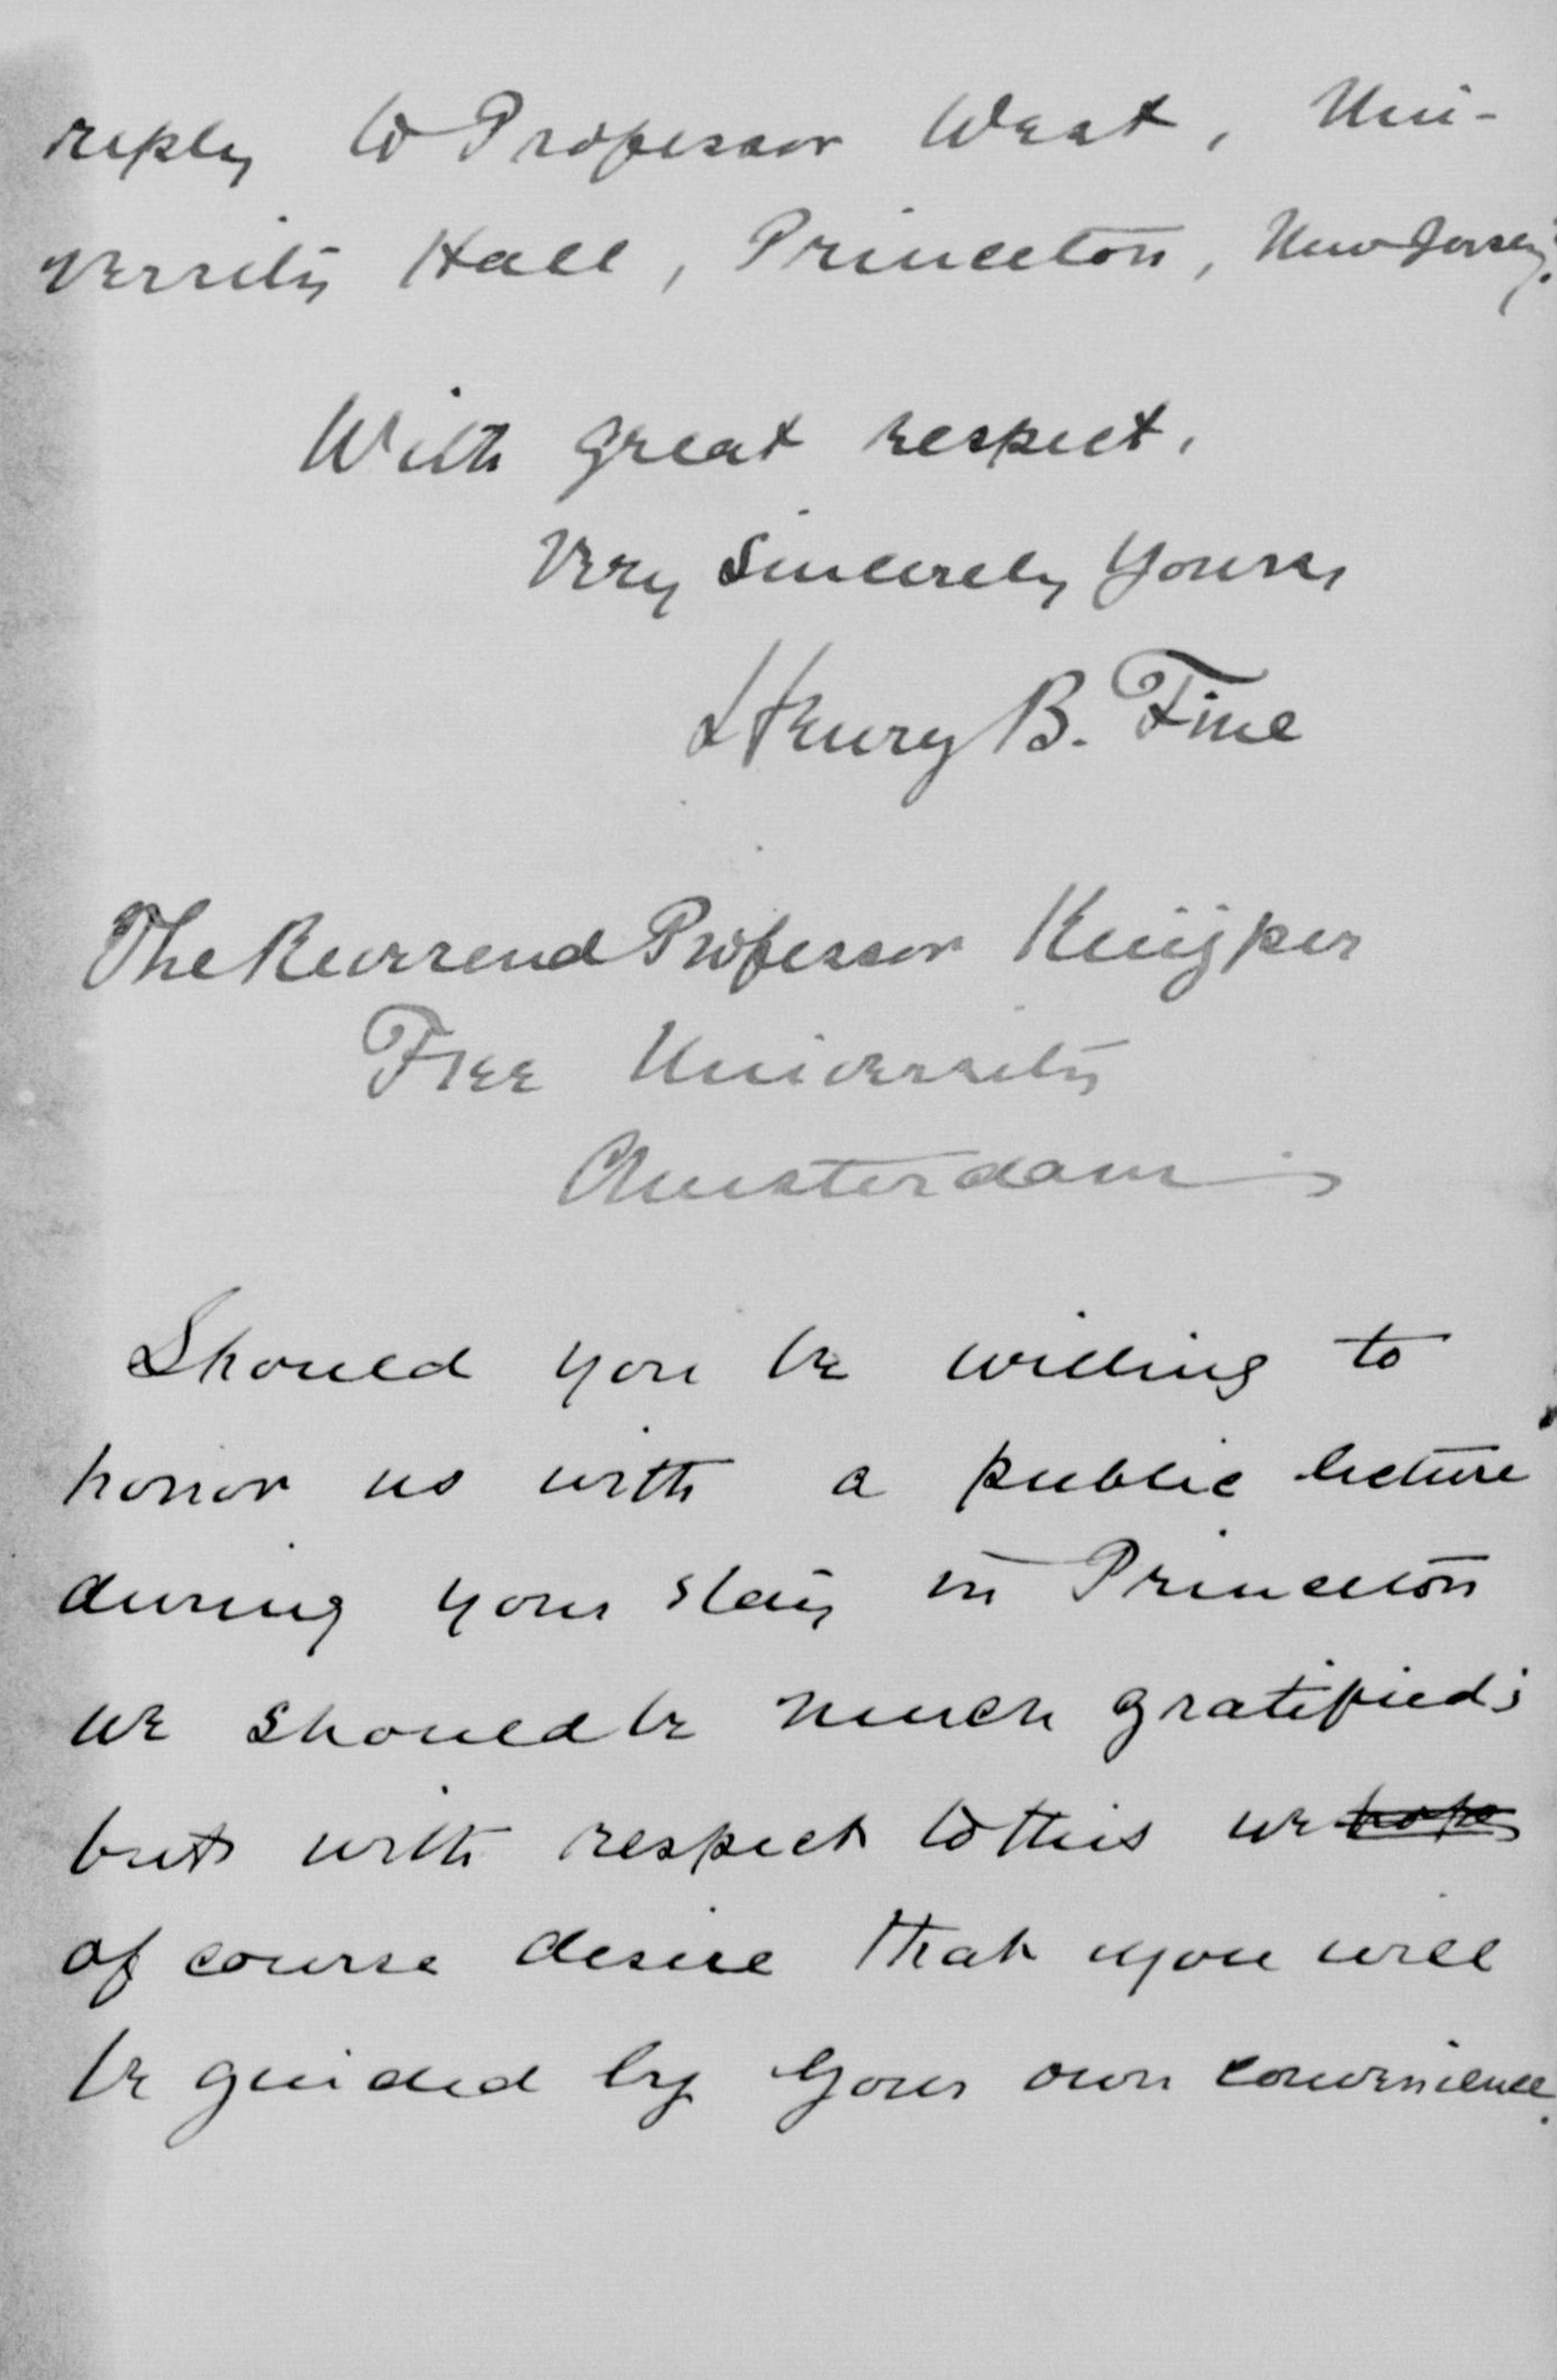 reply to Professor West, Uni-
versity Hall, Princeton, New Jersey.
With great respect,
Very Sincerely Yours,
Henry B. Fine
The Reverend Professor Kuijper
Free University
Amsterdam
Should you be willing to
honor us with a public lecture
during your stay in Princeton
we should be much gratified;
but with respect to this we hope
of course desire that you will
be guided by your own convenience.